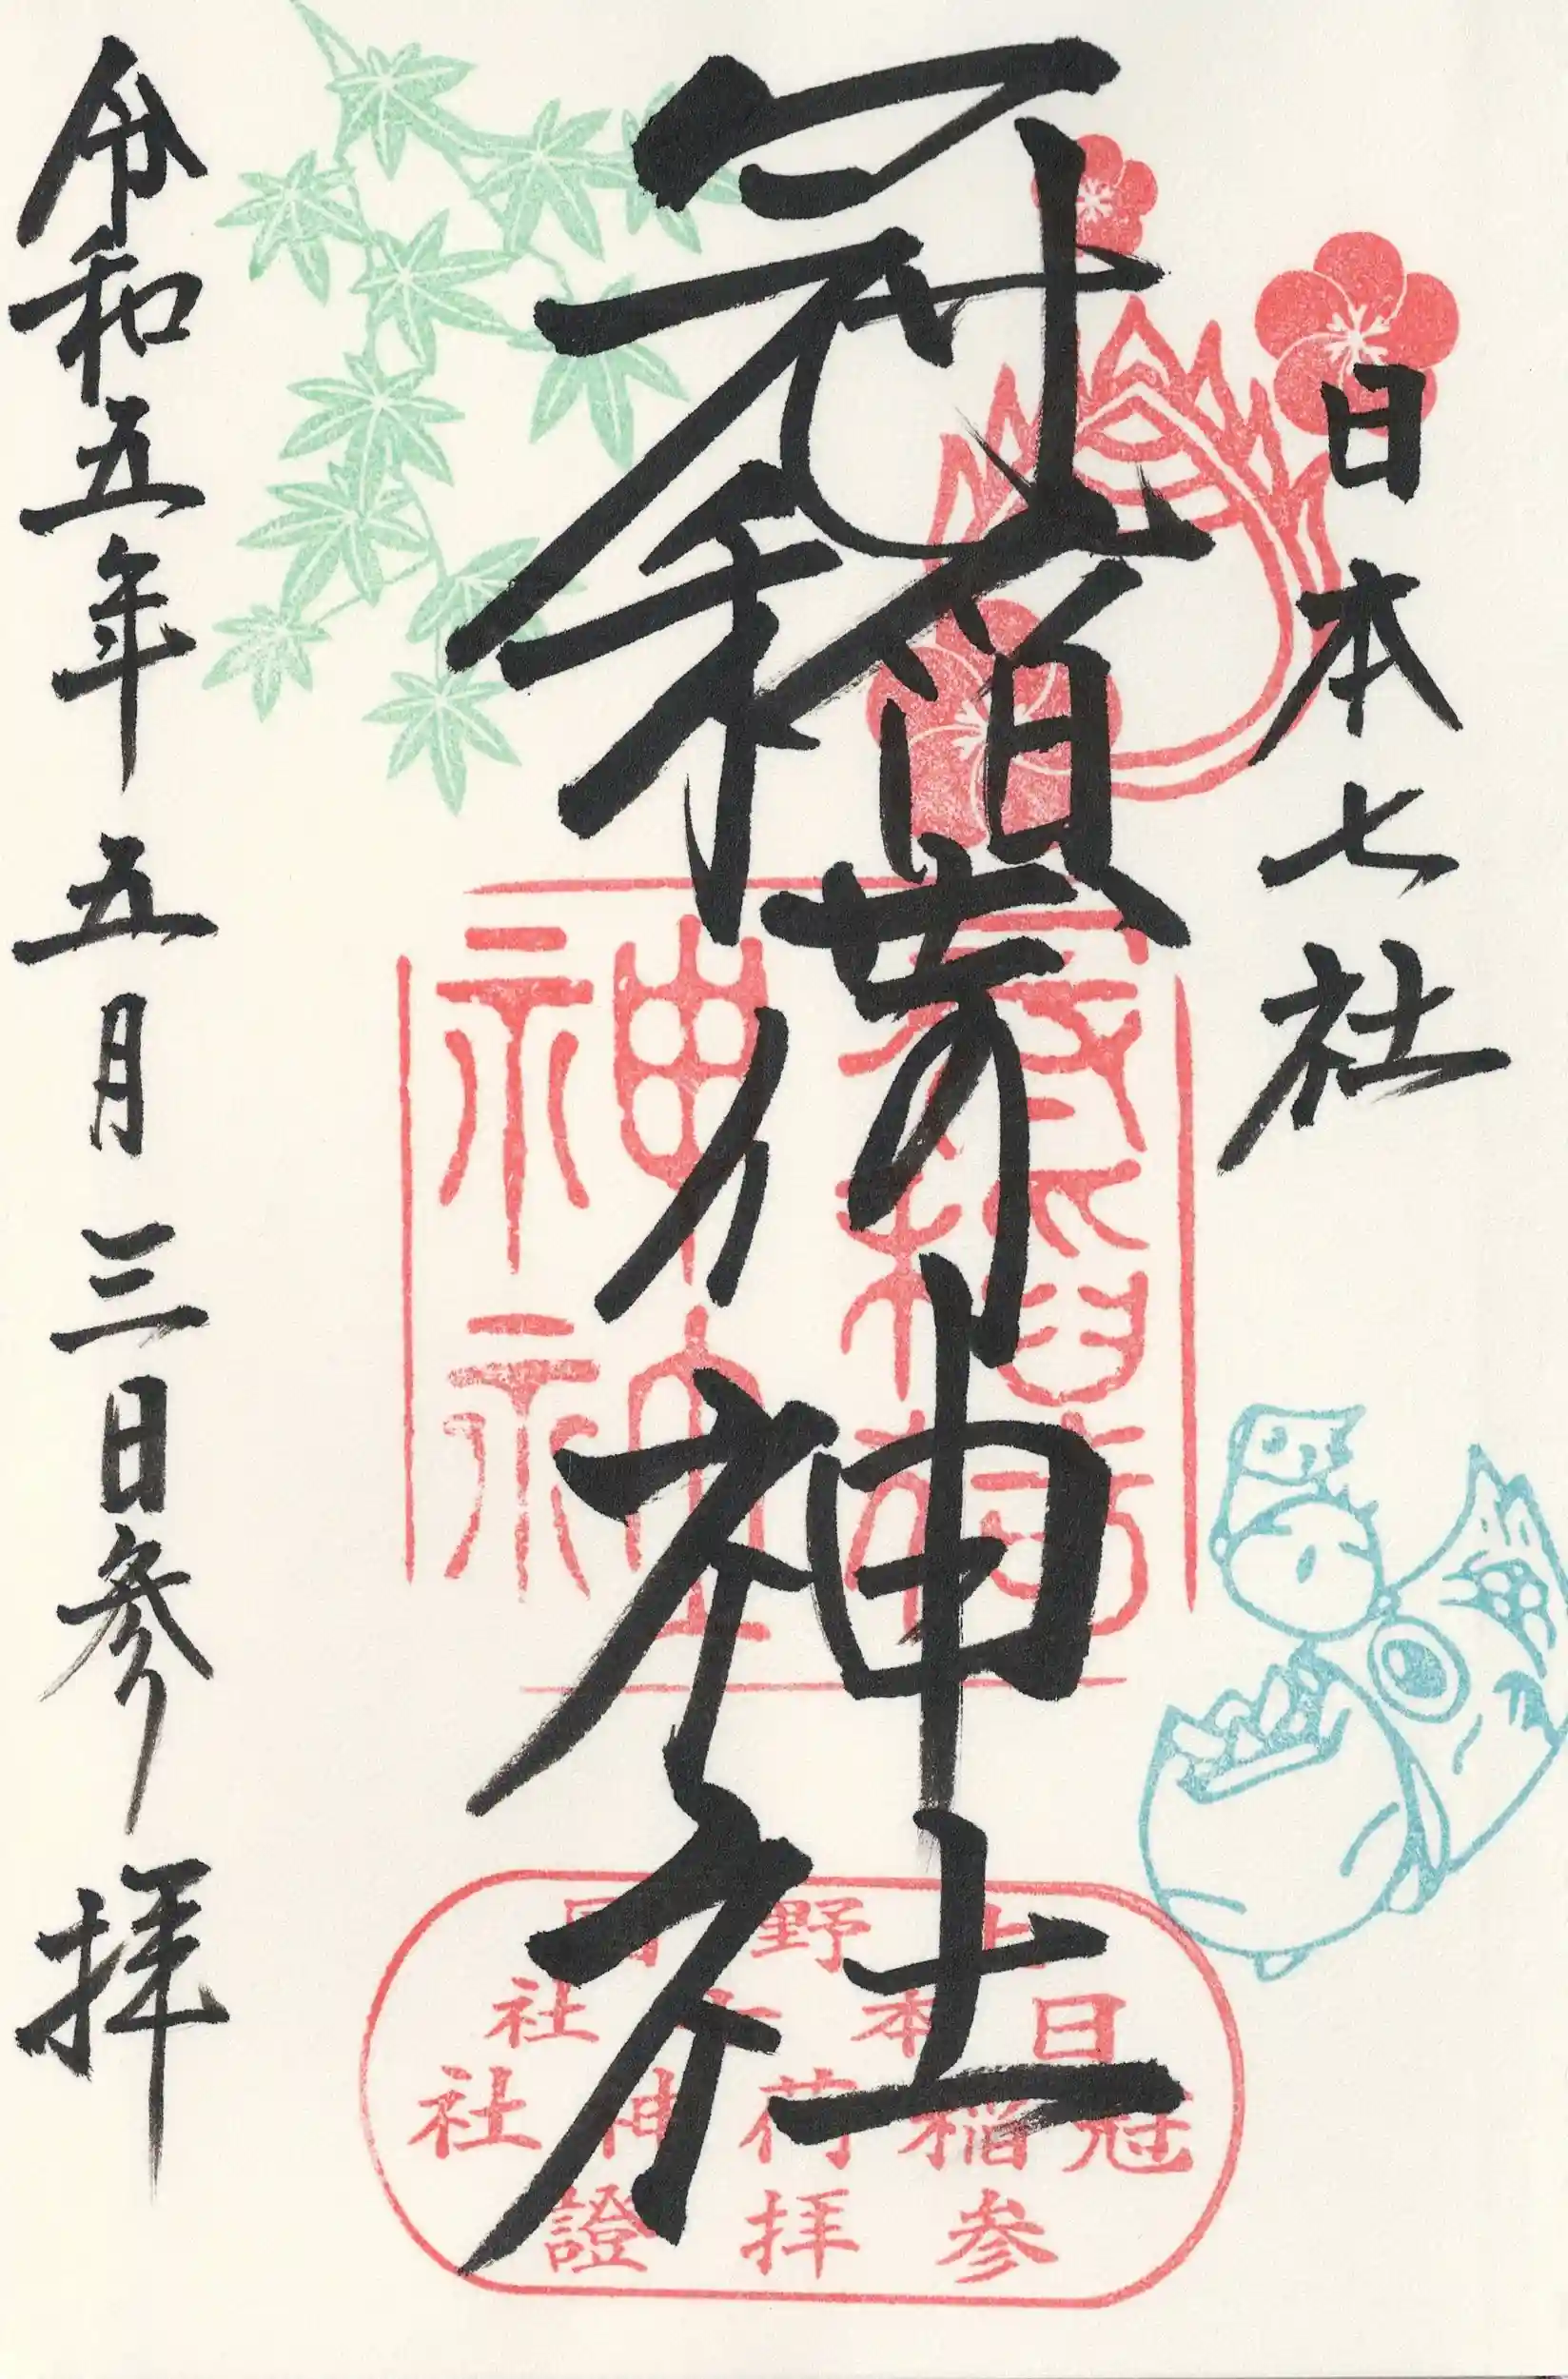 日本七社
冠稲荷神社
令和五年五月三日参拝
冠稲荷
神社
上野
日本七社
冠稲荷神社
参拝證